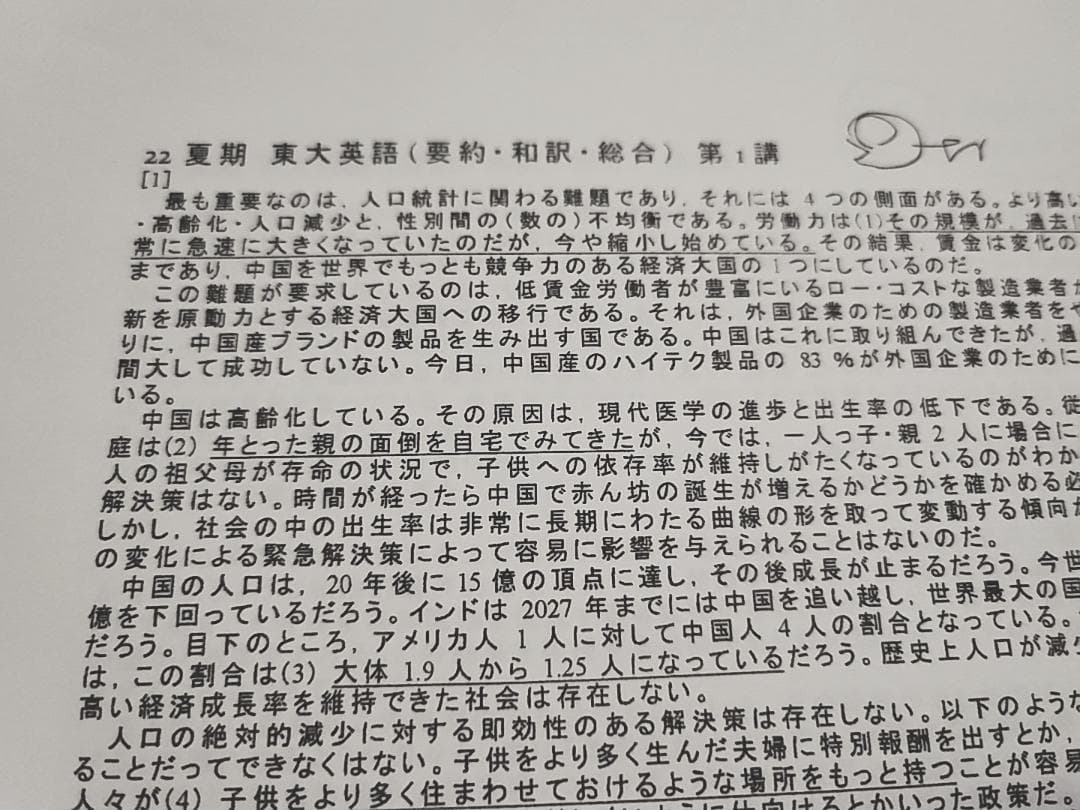 22 夏期 東大英語(要約・和訳・総合) 第1講
[1]
最も重要なのは, 人口統計に関わる難題であり, それには 4 つの側面がある。より高い
・高齢化・人口減少と, 性別間の(数の)不均衡である。労働力は(1)その規模が, 過去に
常に急速に大きくなっていたのだが, 今や縮小し始めている。その結果, 賃金は変化の
まであり, 中国を世界でもっとも競争力のある経済大国の 1 つにしているのだ。
この難題が要求しているのは, 低賃金労働者が豊富にいるロー・コストな製造業者が
新を原動力とする経済大国への移行である。それは, 外国企業のための製造業者をや
りに, 中国産ブランドの製品を生み出す国である。中国はこれに取り組んできたが, 過
間大して成功していない。今日, 中国産のハイテク製品の 83 %が外国企業のために
いる。
中国は高齢化している。その原因は, 現代医学の進歩と出生率の低下である。従
庭は(2) 年とった親の面倒を自宅でみてきたが, 今では, 一人っ子・親 2 人に場合に
人の祖父母が存命の状況で, 子供への依存率が維持しがたくなっているのがわか
解決策はない。時間が経ったら中国で赤ん坊の誕生が増えるかどうかを確かめる必
しかし, 社会の中の出生率は非常に長期にわたる曲線の形を取って変動する傾向が
の変化による緊急解決策によって容易に影響を与えられることはないのだ。
中国の人口は, 20 年後に 15 億の頂点に達し, その後成長が止まるだろう。今世
億を下回っているだろう。インドは 2027 年までには中国を追い越し, 世界最大の国
だろう。目下のところ, アメリカ人 1 人に対して中国人 4 人の割合となっている。
は, この割合は(3) 大体 1.9 人から 1.25 人になっているだろう。歴史上人口が減少
高い経済成長率を維持できた社会は存在しない。
人口の絶対的減少に対する即効性のある解決策は存在しない。以下のような
ることだってできなくはない。子供をより多く生んだ夫婦に特別報酬を出すとか,
人々が(4) 子供をより多く住まわせておけるような場所をもっと持つことが容易
ように仕向けるとかいった政策だ。